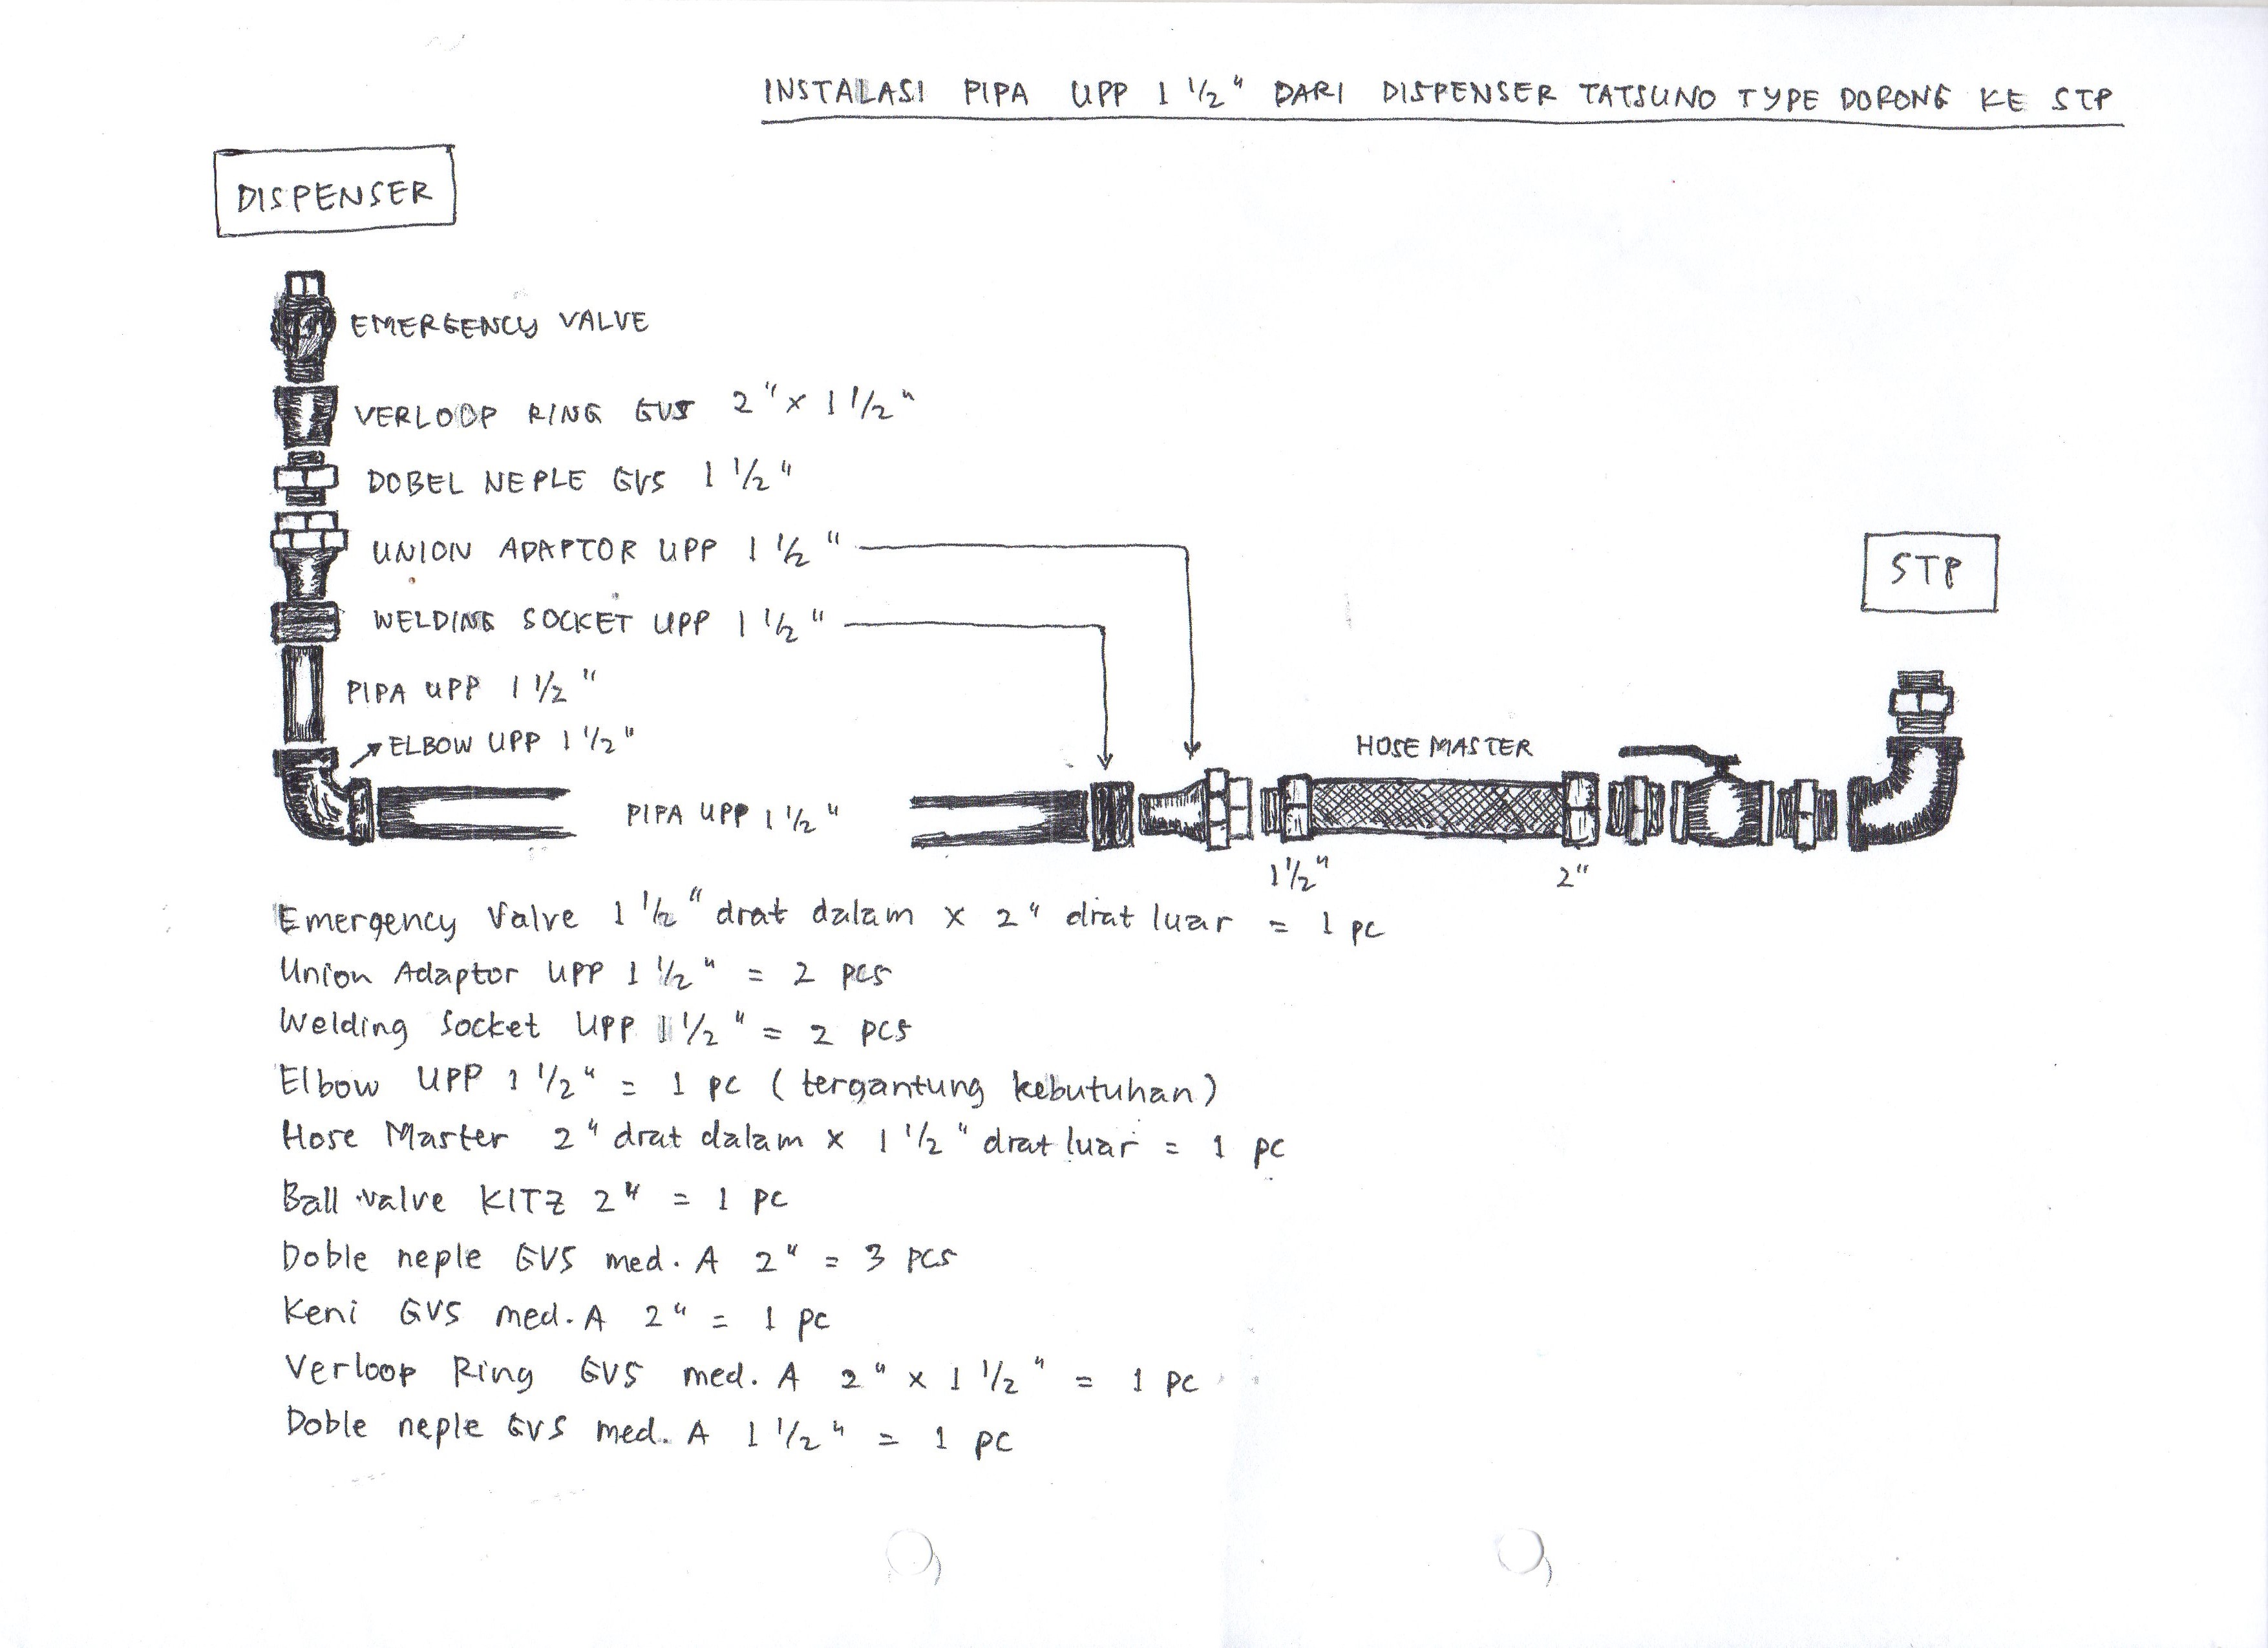 INSTALASI PIPA UPP 1 1/2" DARI DISPENSER TATSUNO TYPE DORONG KE STP
DISPENSER
EMERGENCY VALVE
VERLOOP RING GVS 2" x 1 1/2"
DOBEL NEPLE GVS 1 1/2"
UNION ADAPTOR UPP 1 1/2"
WELDING SOCKET UPP 1 1/2"
PIPA UPP 1 1/2"
ELBOW UPP 1 1/2"
PIPA UPP 1 1/2"
HOSE MASTER
STP
1 1/2"
2"
Emergency Valve 1 1/2" drat dalam x 2" drat luar = 1 pc
Union Adaptor UPP 1 1/2" = 2 pcs
Welding Socket UPP 1 1/2" = 2 pcs
Elbow UPP 1 1/2" = 1 pc (tergantung kebutuhan)
Hose Master 2" drat dalam x 1 1/2" drat luar = 1 pc
Ball valve KITZ 2" = 1 pc
Doble neple GVS med. A 2" = 3 pcs
Keni GVS med. A 2" = 1 pc
Verloop Ring GVS med. A 2" x 1 1/2" = 1 pc
Doble neple GVS med. A 1 1/2" = 1 pc